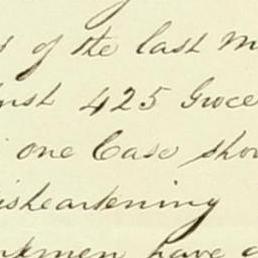 of the last M
inst 425 Groce
one Case sho
isheartening
kmen have a